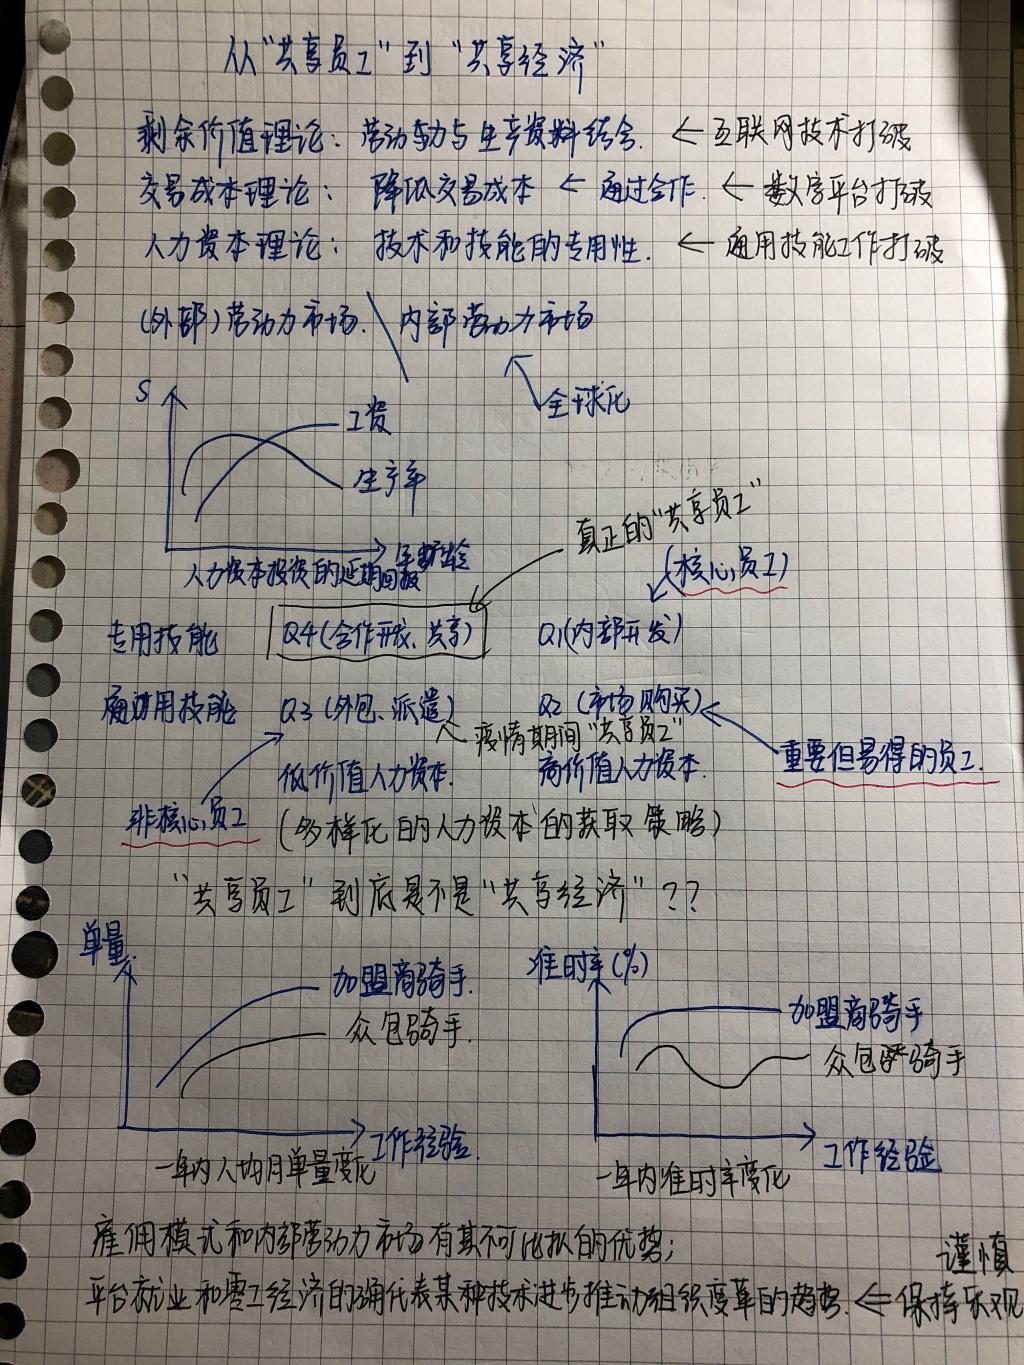 从"共享员工"到"共享经济"
剩余价值理论：劳动力与生产资料结合. ← 互联网技术打破
交易成本理论：降低交易成本 ← 通过合作. ← 数字平台打破
人力资本理论：技术和技能的专用性. ← 通用技能工作打破
(外部)劳动力市场. 内部劳动力市场
全球化
S
工资
生产率
年龄
人力资本投资的延期回报
真正的"共享员工"
(核心员工)
专用技能 Q4(合作开发、共享) Q1(内部开发)
通用技能 Q3(外包、派遣) Q2(市场购买)
疫情期间"共享员工"
重要但易得的员工.
低价值人力资本. 高价值人力资本.
非核心员工
(多样化的人力资本的获取策略)
"共享员工"到底是不是"共享经济"??
单量
加盟商骑手.
众包骑手.
工作经验.
一年内人均月单量变化
准时率(%)
加盟商骑手
众包骑手
工作经验
一年内准时率变化
雇佣模式和内部劳动力市场有其不可比拟的优势;
谨慎
平台就业和零工经济的确代表某种技术进步推动组织变革的趋势. ⇐ 保持乐观